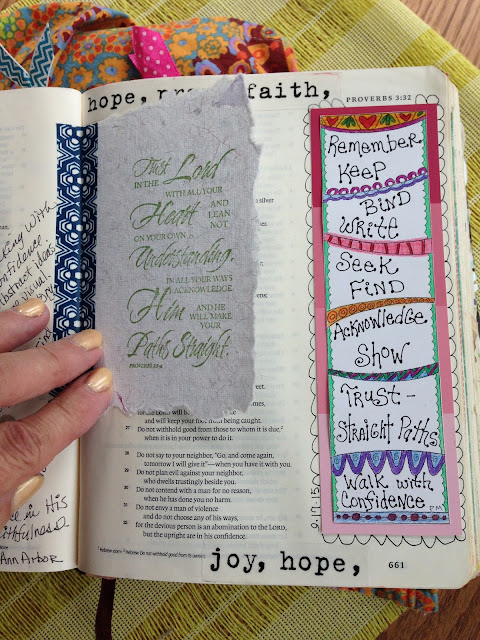 hope, faith,
PROVERBS 3:32
Trust Lord
IN THE
WITH ALL YOUR
Heart AND
LEAN
NOT
ON YOUR OWN
Understanding.
IN ALL YOUR WAYS
ACKNOWLEDGE
Him AND HE
WILL MAKE
YOUR
Paths Straight.
PROVERBS 3:5-6
silver
for the LORD will
and will keep your foot from being caught.
27 Do not withhold good from those to whom it is due,
when it is in your power to do it.
28 Do not say to your neighbor, "Go, and come again,
tomorrow I will give it"—when you have it with you.
29 Do not plan evil against your neighbor,
who dwells trustingly beside you.
30 Do not contend with a man for no reason,
when he has done you no harm.
31 Do not envy a man of violence
and do not choose any of his ways,
32 for the devious person is an abomination to the LORD,
but the upright are in his confidence.
joy, hope,
661
Remember
Keep
Bind
Write
Seek
Find
Acknowledge
Show
Trust -
Straight Paths
Walk with
Confidence
9.17.15
with
in His
Ann Arbor